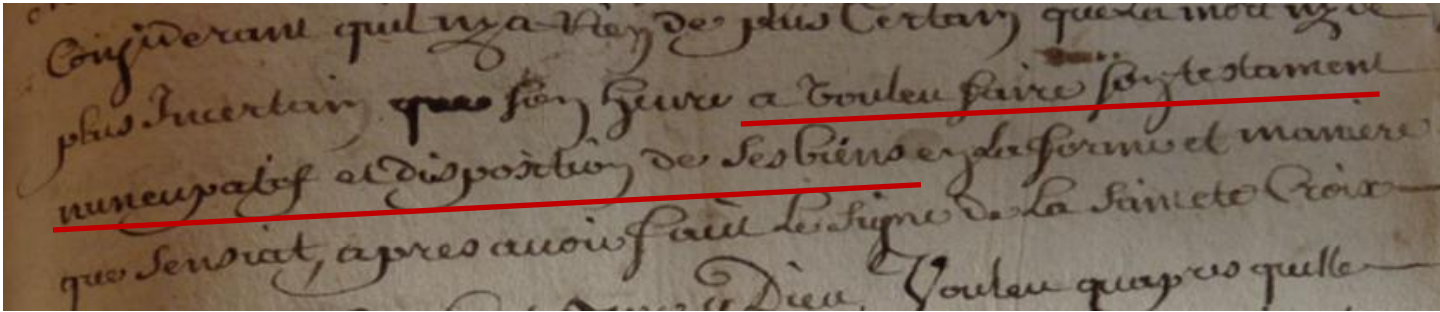 Considerant quil nya Rien de plus Certain que la mort ny de
plus Incertain que son heure a voulleu faire son testament
nuncupatif et disposition de ses biens en la forme et maniere
que sensuit, apres avoir faict le signe de la saincte Croix
Dieu, Vouleu quapres quelle